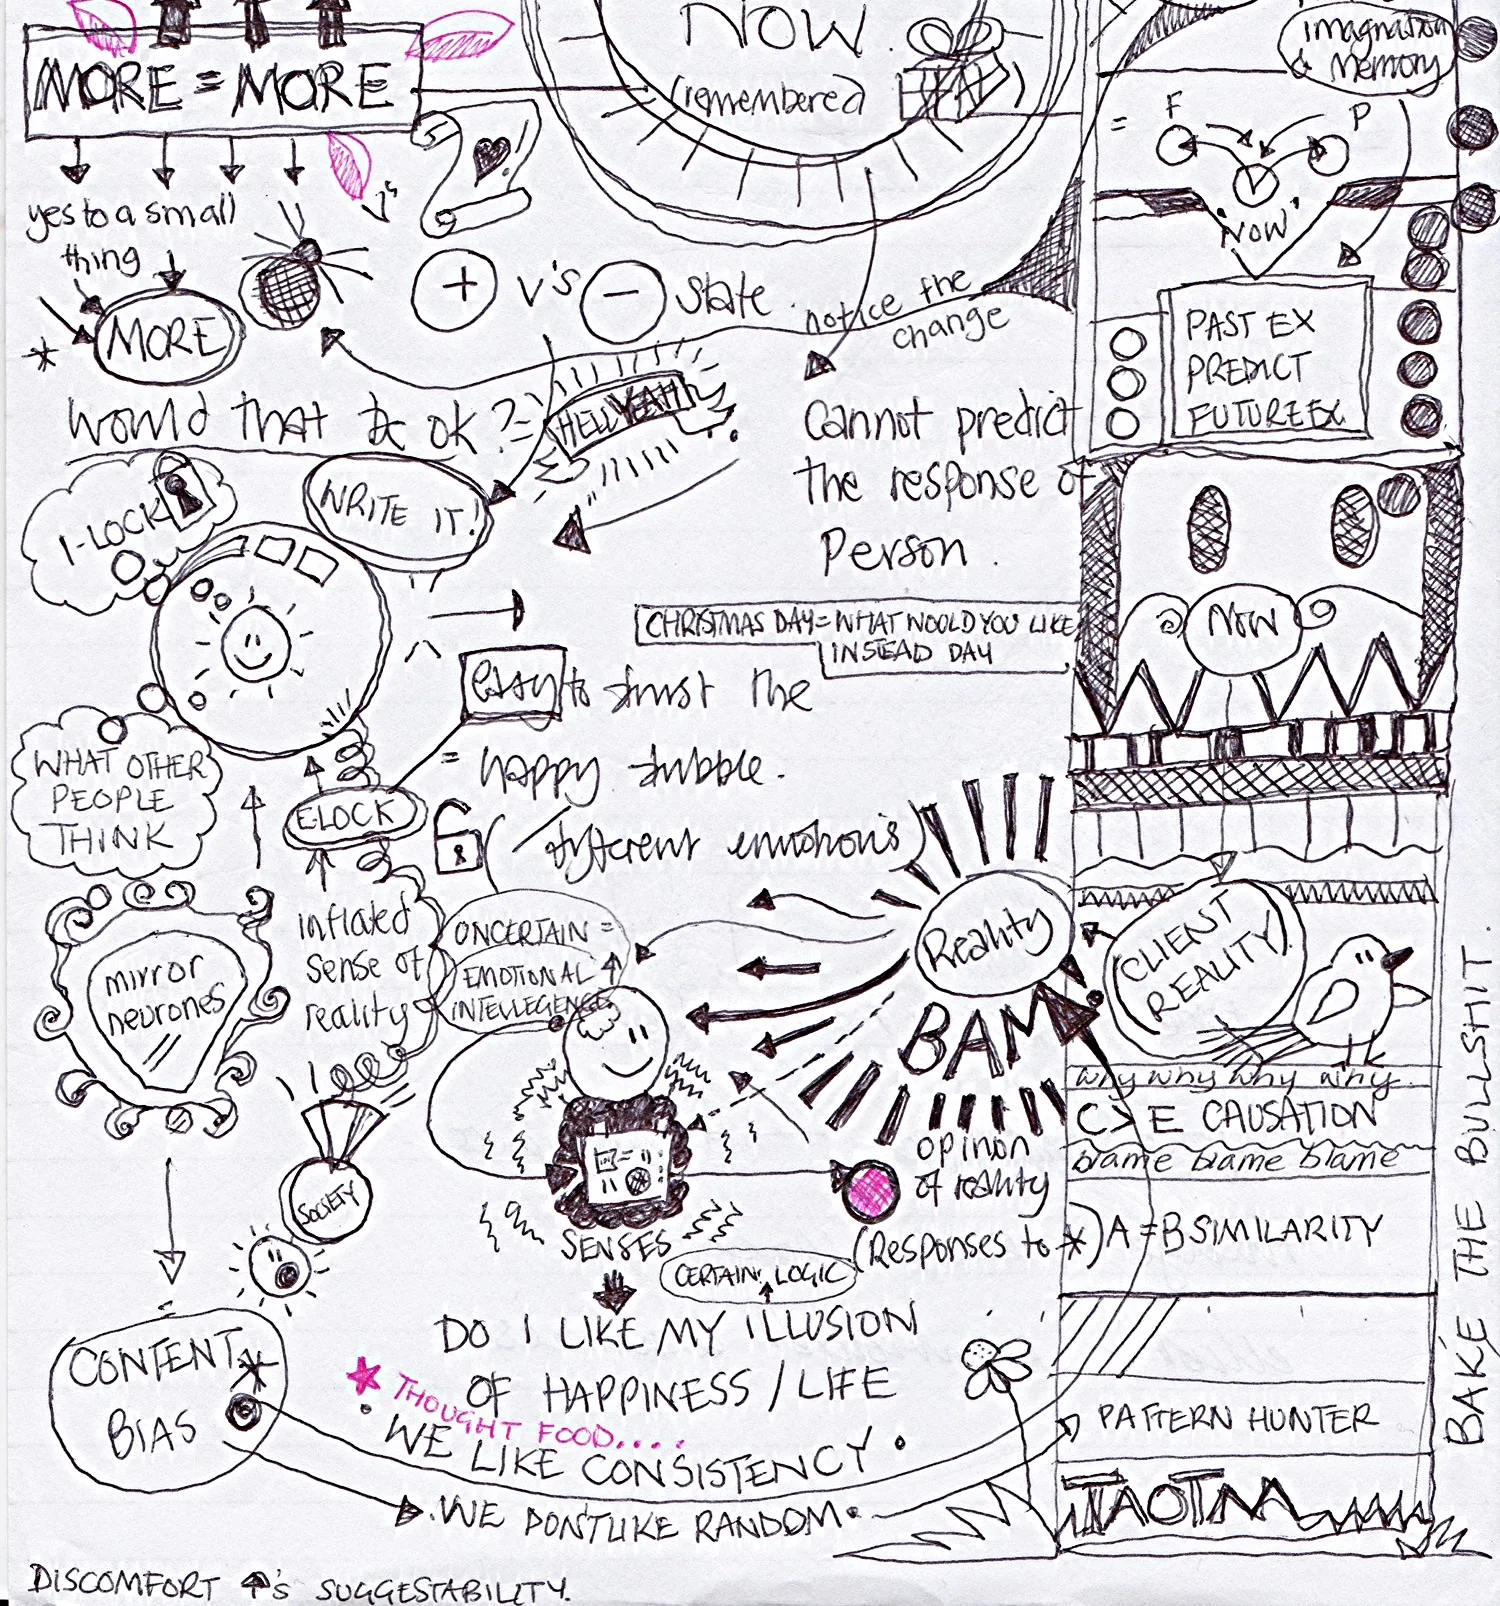 MORE = MORE
yes to a small
thing
MORE
would that be ok?=
HELL YEAH
+ v's - state
NOW.
(remembered
)
notice the
change
Cannot predict
the response of
Person.
imagnation
& memory
= F P
'NOW'
PAST EX
PREDICT
FUTURE EX
NOW
I-LOCK
WRITE IT!
CHRISTMAS DAY = WHAT WOULD YOU LIKE
INSTEAD DAY
easy to trust the
= happy bubble.
(different emotions)
WHAT OTHER
PEOPLE
THINK
E-LOCK
inflated
sense of
reality
mirror
neurones
UNCERTAIN =
EMOTIONAL
INTELLEGENCE
Reality
BAM.
CLIENT
REALITY
why why why why.
C > E CAUSATION
blame blame blame
A = B SIMILARITY
opinon
of reality
(Responses to *)
SOCIETY
SENSES
CERTAIN: LOGIC
DO I LIKE MY ILLUSION
OF HAPPINESS / LIFE
THOUGHT FOOD....
WE LIKE CONSISTENCY.
WE DONT LIKE RANDOM.
CONTENT *
BIAS
PATTERN HUNTER
TAOTM
BAKE THE BULLSHIT.
DISCOMFORT ↑'s SUGGESTABILITY.